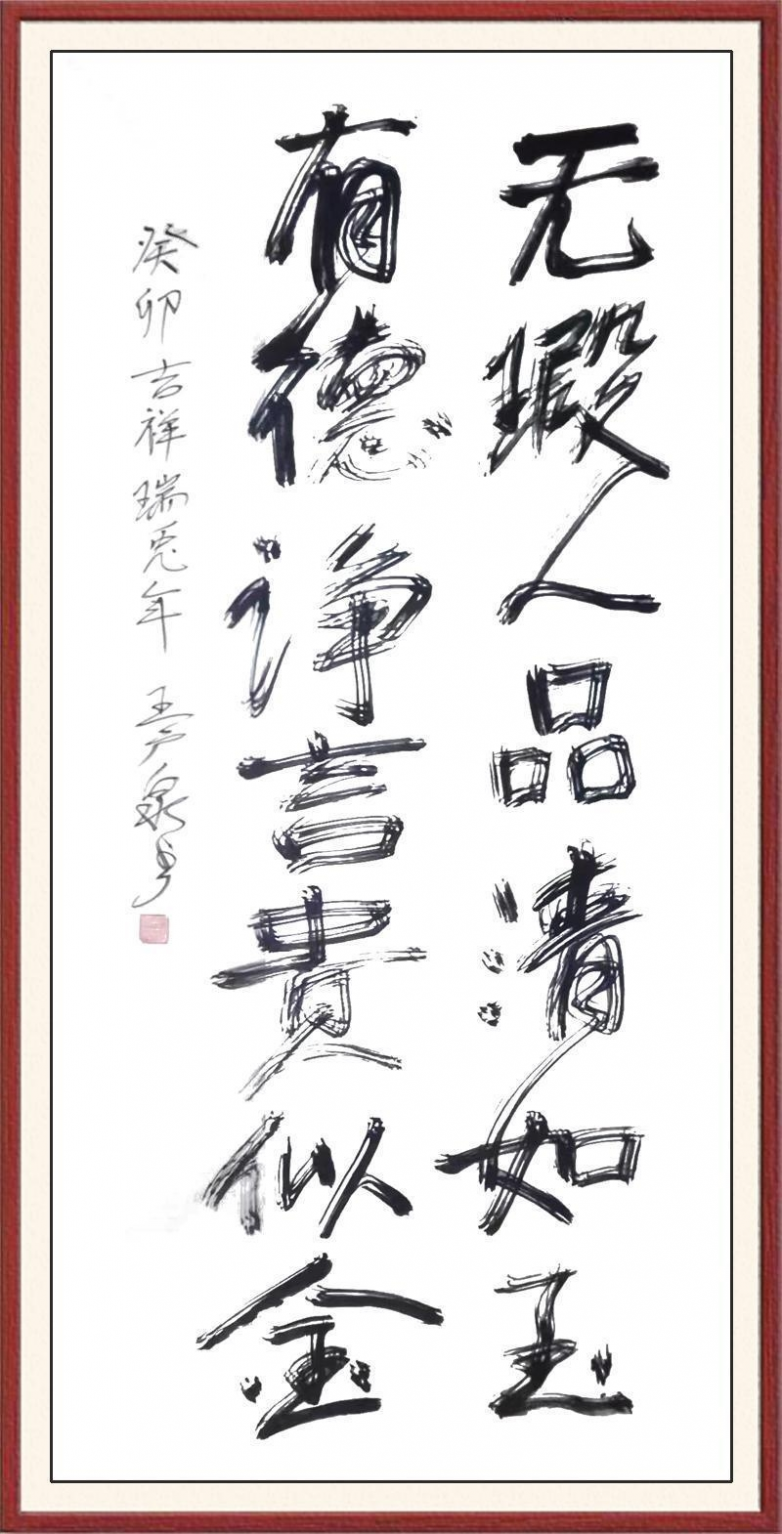 无瑕人品清如玉
有德诤言贵似金
癸卯吉祥瑞兔年 王户泉书